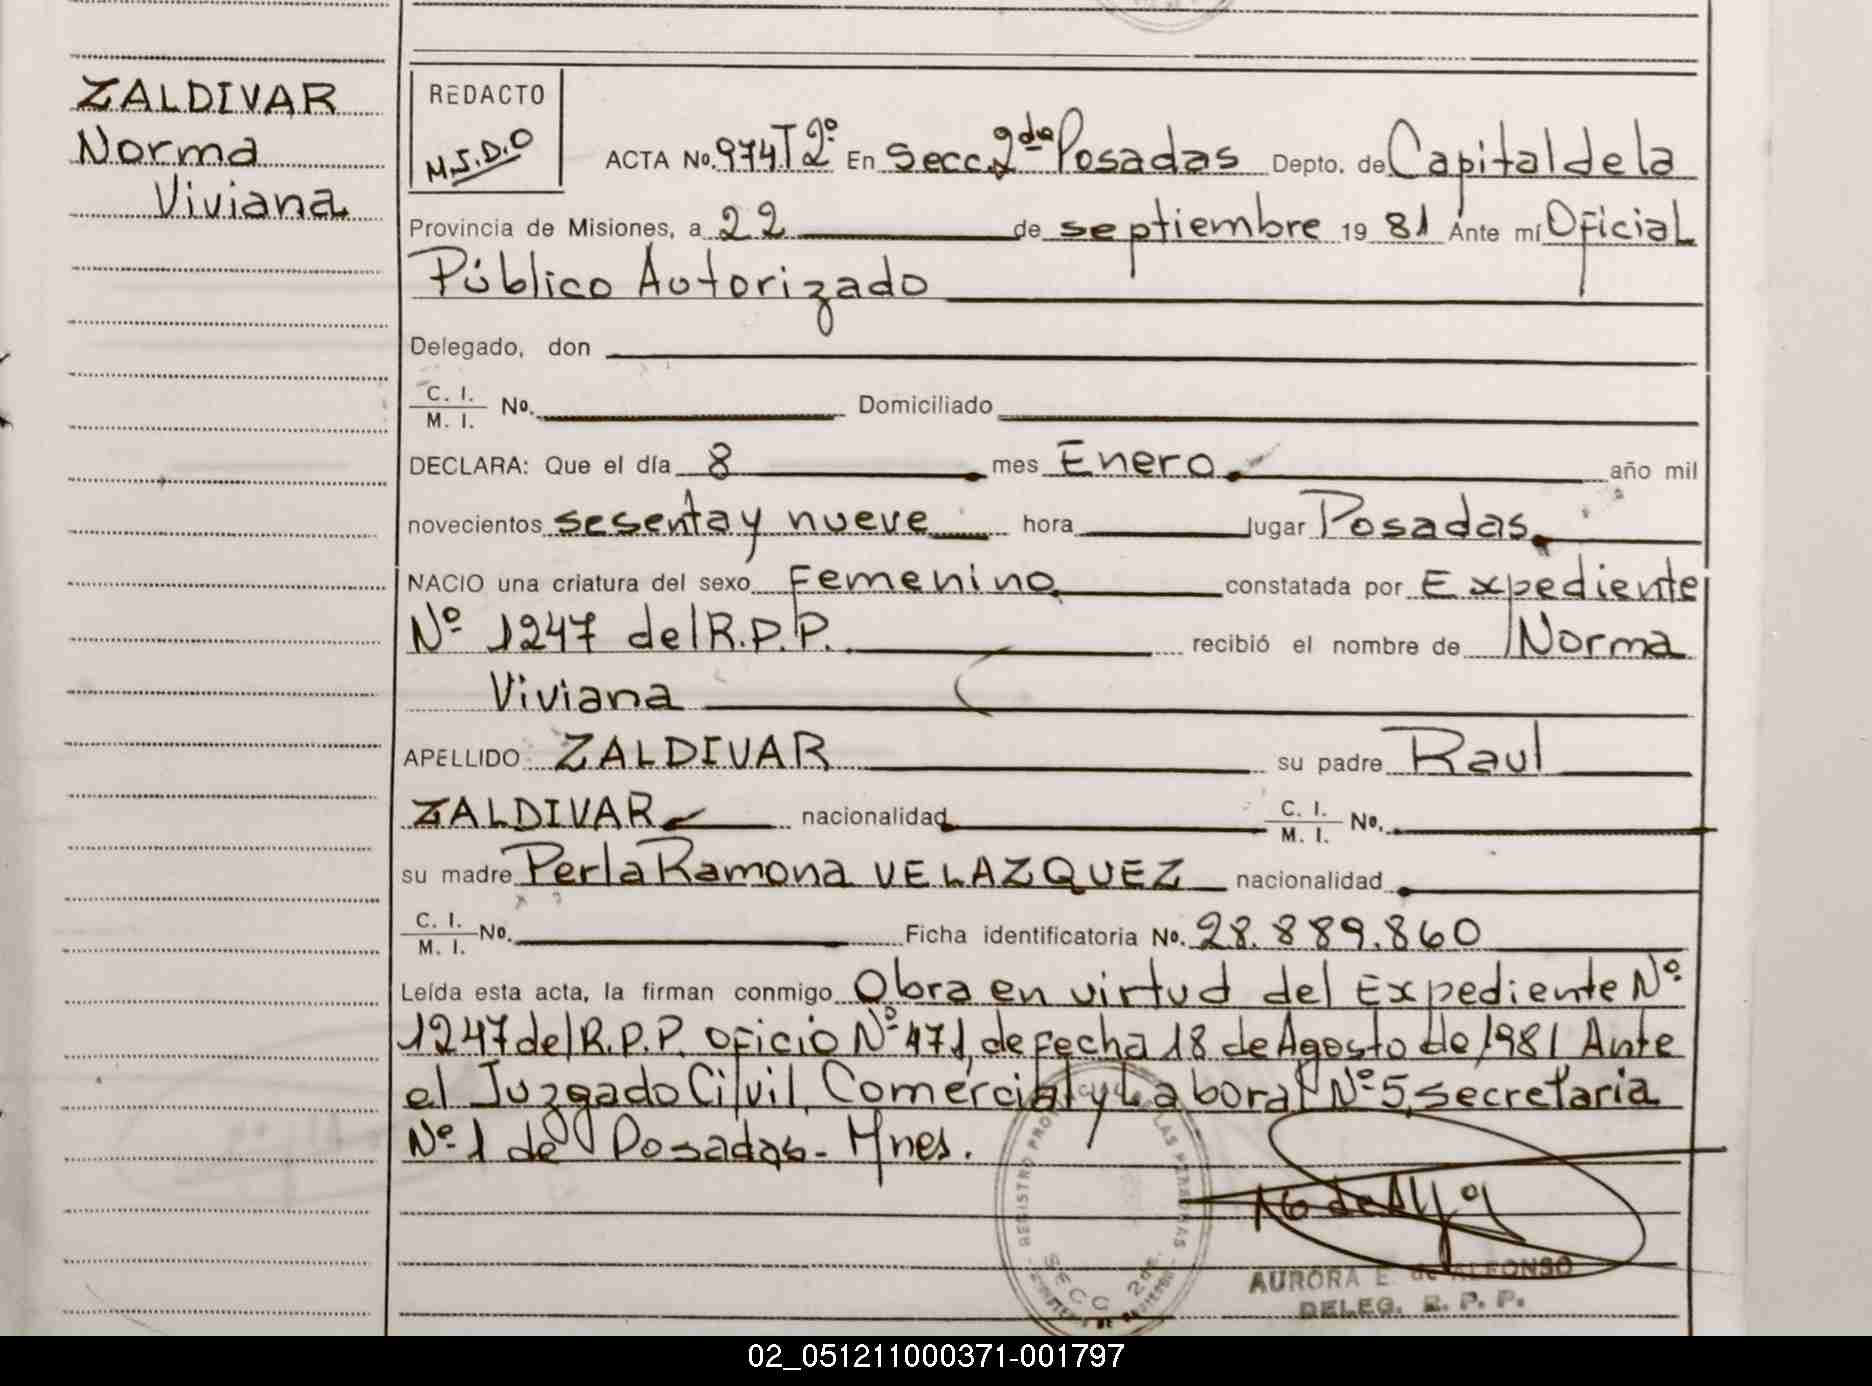 ZALDIVAR
Norma
Viviana
REDACTO
M.S.D.O
ACTA No. 974 T 2º En Secc. 2da Posadas Depto. de Capital de la
Provincia de Misiones, a 22 de septiembre 19 81 Ante mí Oficial
Público Autorizado
Delegado, don
C. I.
M. I. No. Domiciliado
DECLARA: Que el día 8 mes Enero. año mil
novecientos sesenta y nueve hora lugar Posadas.
NACIO una criatura del sexo Femenino constatada por Expediente
Nº 1247 del R.P.P. recibió el nombre de Norma
Viviana
APELLIDO ZALDIVAR su padre Raul
ZALDIVAR nacionalidad C. I.
M. I. No.
su madre Perla Ramona VELAZQUEZ nacionalidad
C. I.
M. I. No. Ficha identificatoria No. 28.889.860
Leída esta acta, la firman conmigo Obra en virtud del Expediente Nº
1247 del R.P.P. oficio Nº 471, de fecha 18 de Agosto de 1981 Ante
el Juzgado Civil, Comercial y Laboral Nº 5, secretaria
Nº 1 de Posadas - Mnes.
REGISTRO PROVINCIAL DE LAS PERSONAS
SECC 2da.
AURORA E. de ALFONSO
DELEG. R. P. P.
02_051211000371-001797